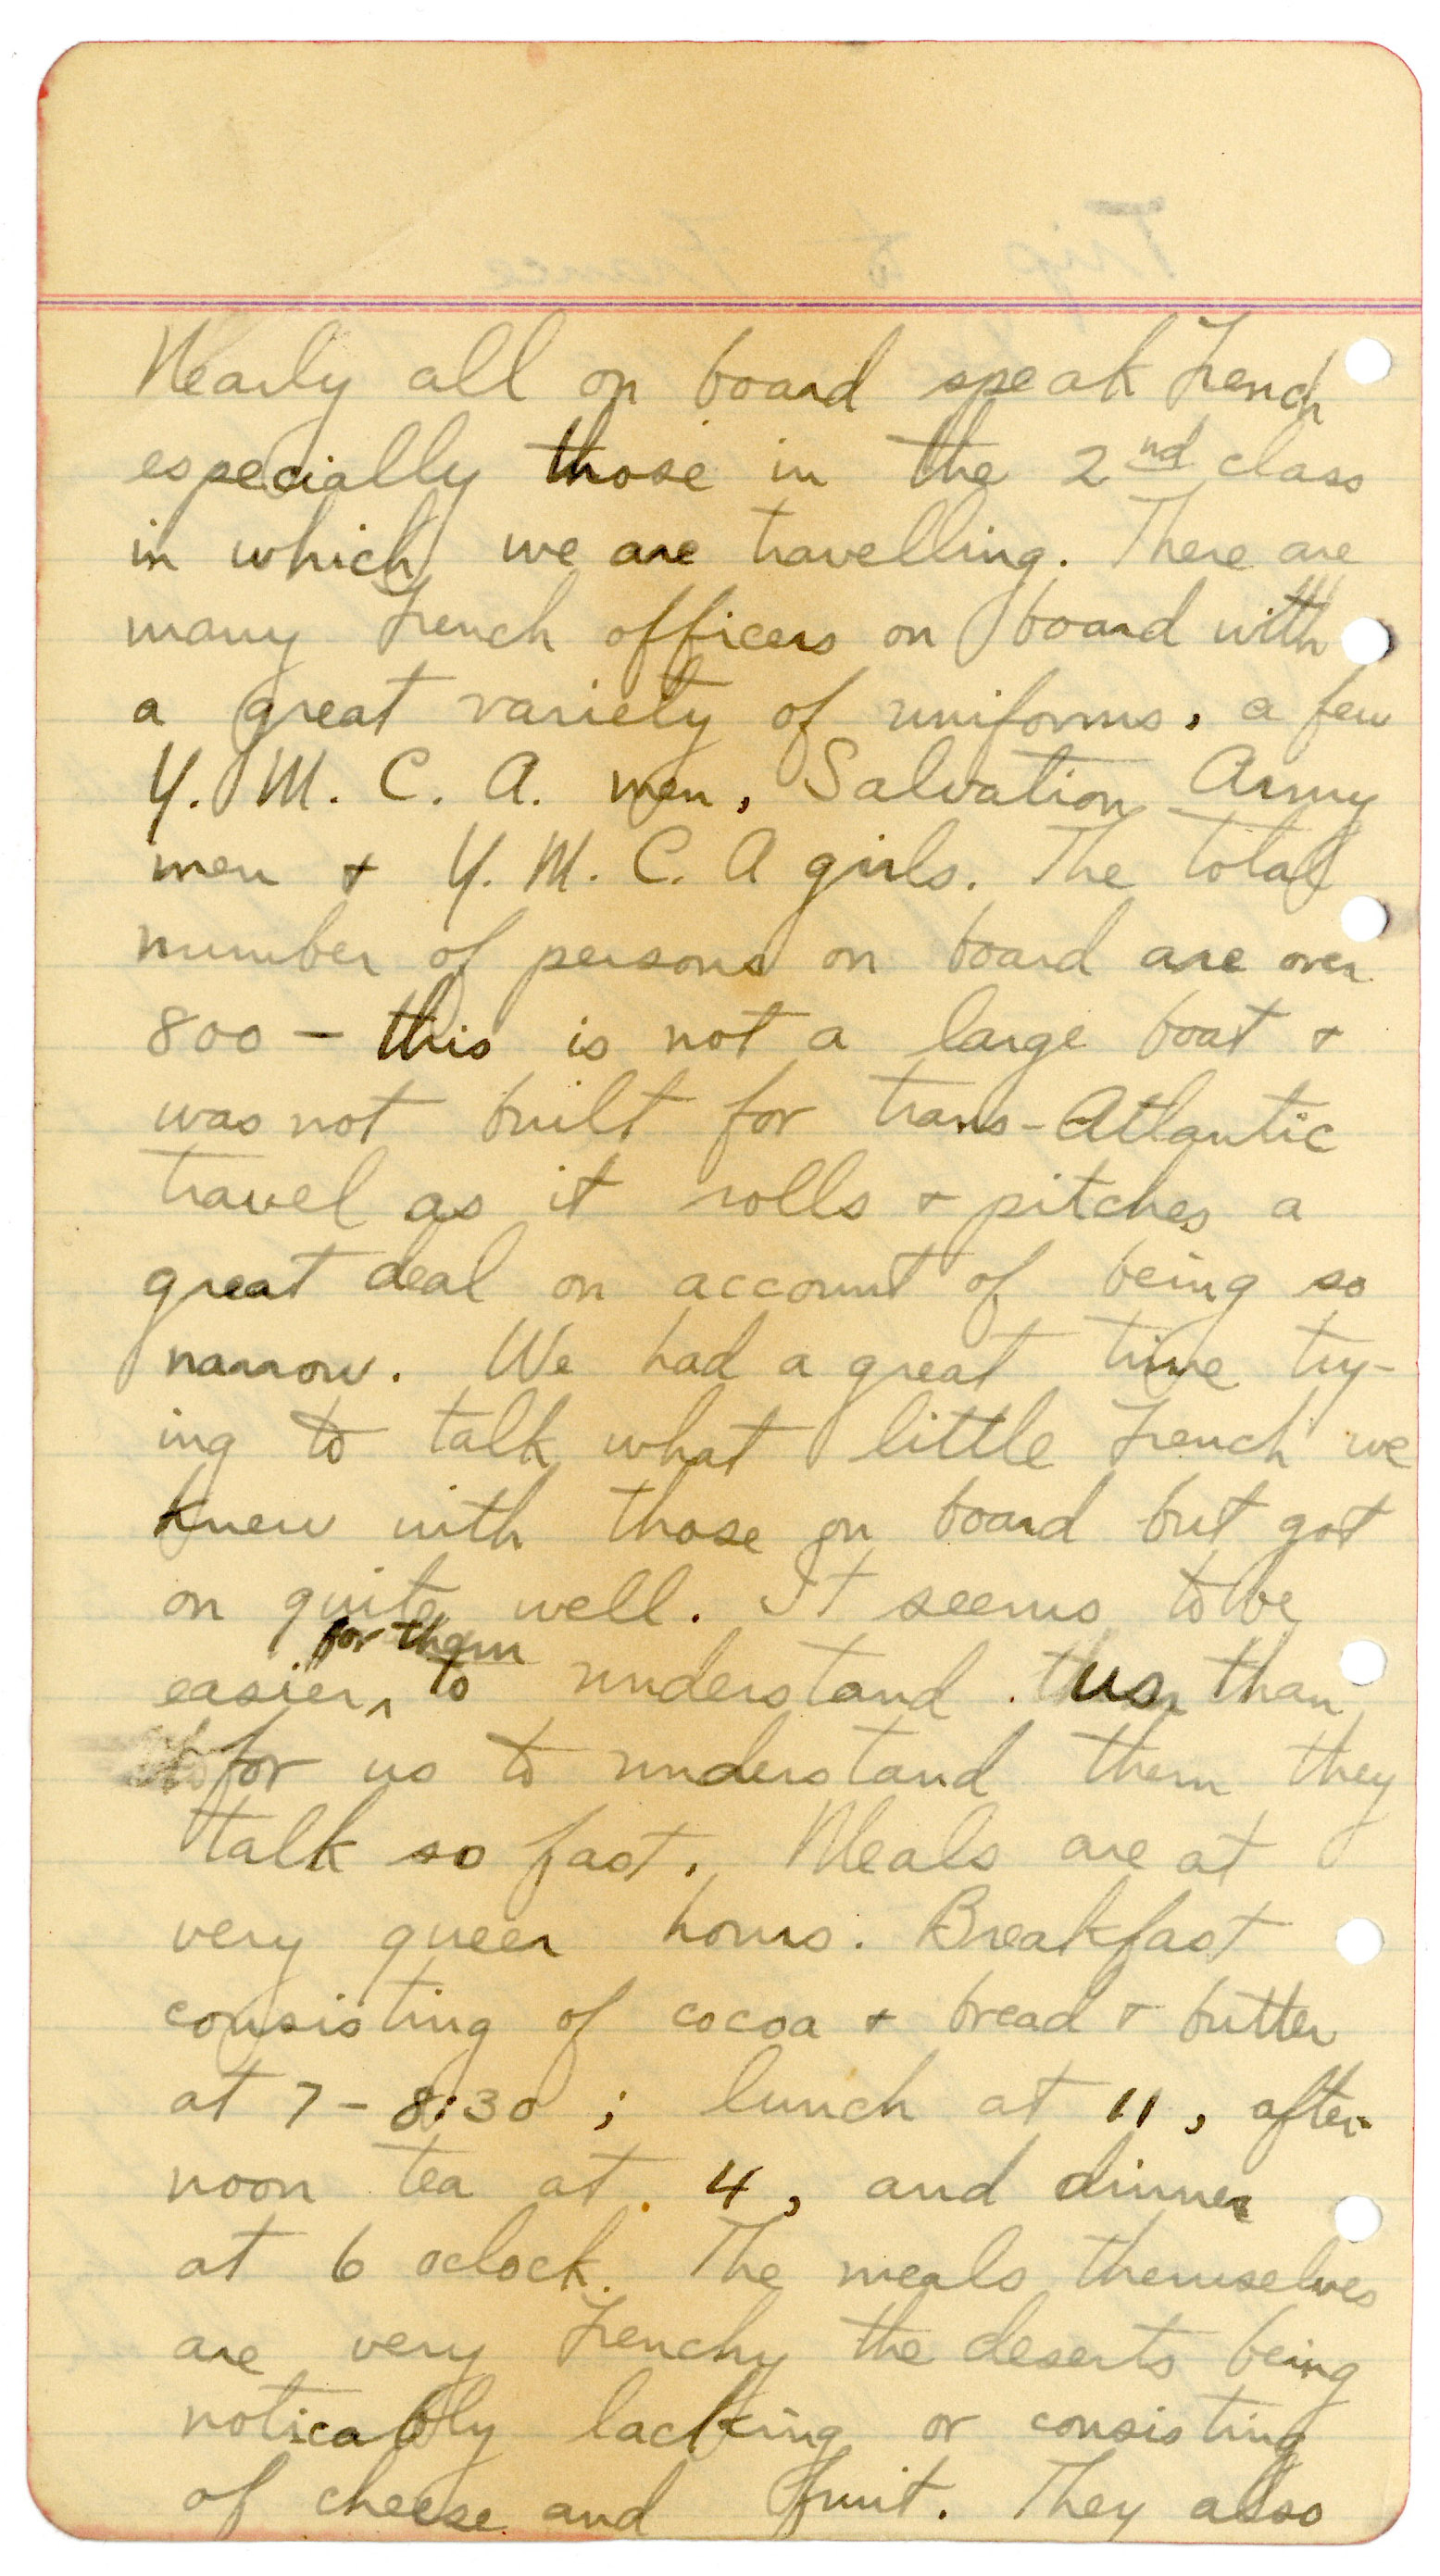 Nearly all on board speak French
especially those in the 2nd class
in which we are travelling. There are
many French officers on board with
a great variety of uniforms, a few
Y. M. C. A. men, Salvation Army
men + Y. M. C. A girls. The total
number of persons on board are over
800 - this is not a large boat +
was not built for trans-Atlantic
travel as it rolls + pitches a
great deal on account of being so
narrow. We had a great time try-
ing to talk what little French we
knew with those on board but got
on quite well. It seems to be
for them
easier ^ to understand us than
for us to understand them they
talk so fast. Meals are at
very queer hours. Breakfast
consisting of cocoa + bread + butter
at 7 - 8:30 ; lunch at 11, after-
noon tea at 4, and dinner
at 6 oclock. The meals themselves
are very Frenchy the deserts being
noticably lacking or consisting
of cheese and fruit. They also